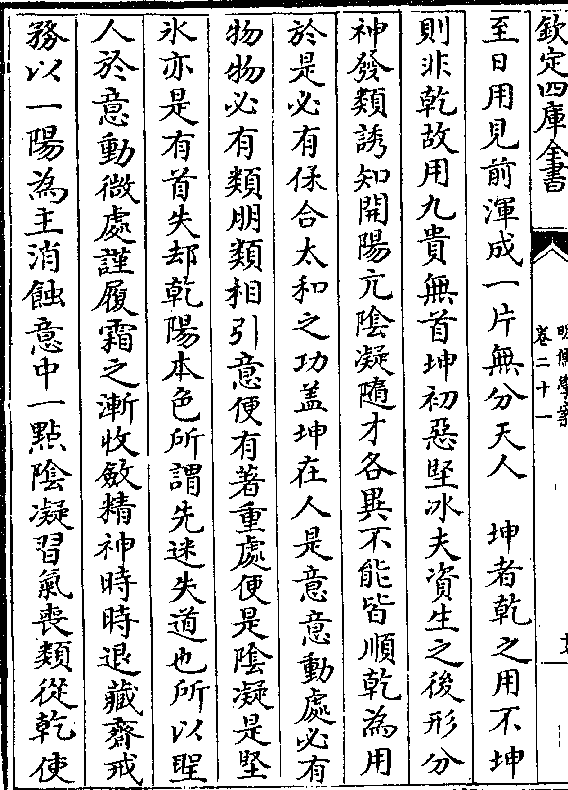 欽定四庫全書
明儒學案
卷二十一
至日用見前渾成一片無分天人　坤者乾之用不坤
則非乾故用九貴無首坤初惡堅冰夫資生之後形分
神發類誘知開陽亢陰凝隨才各異不能皆順乾為用
於是必有保合太和之功盖坤在人是意意動處必有
物物必有類朋類相引意便有著重處便是陰凝是堅
氷亦是有首失却乾陽本色所謂先迷失道也所以聖
人於意動微處謹履霜之漸收斂精神時時退藏齋戒
務以一陽為主消蝕意中一點陰凝習氣喪類從乾使